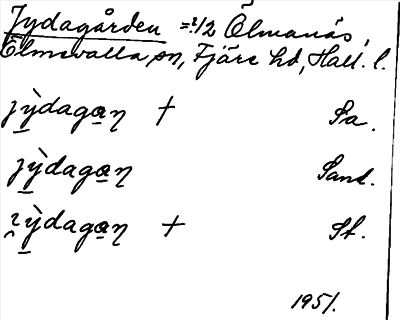 Jydagården = ?1/2 Ölmanäs,
Ölmevalla sn, Fjäre hd, Hall. l.
jỳ̱daga̱ŋ + Sa.
jỳ̱daga̱ŋ Sand.
ỳ̱daga̱ŋ + St.
1951.